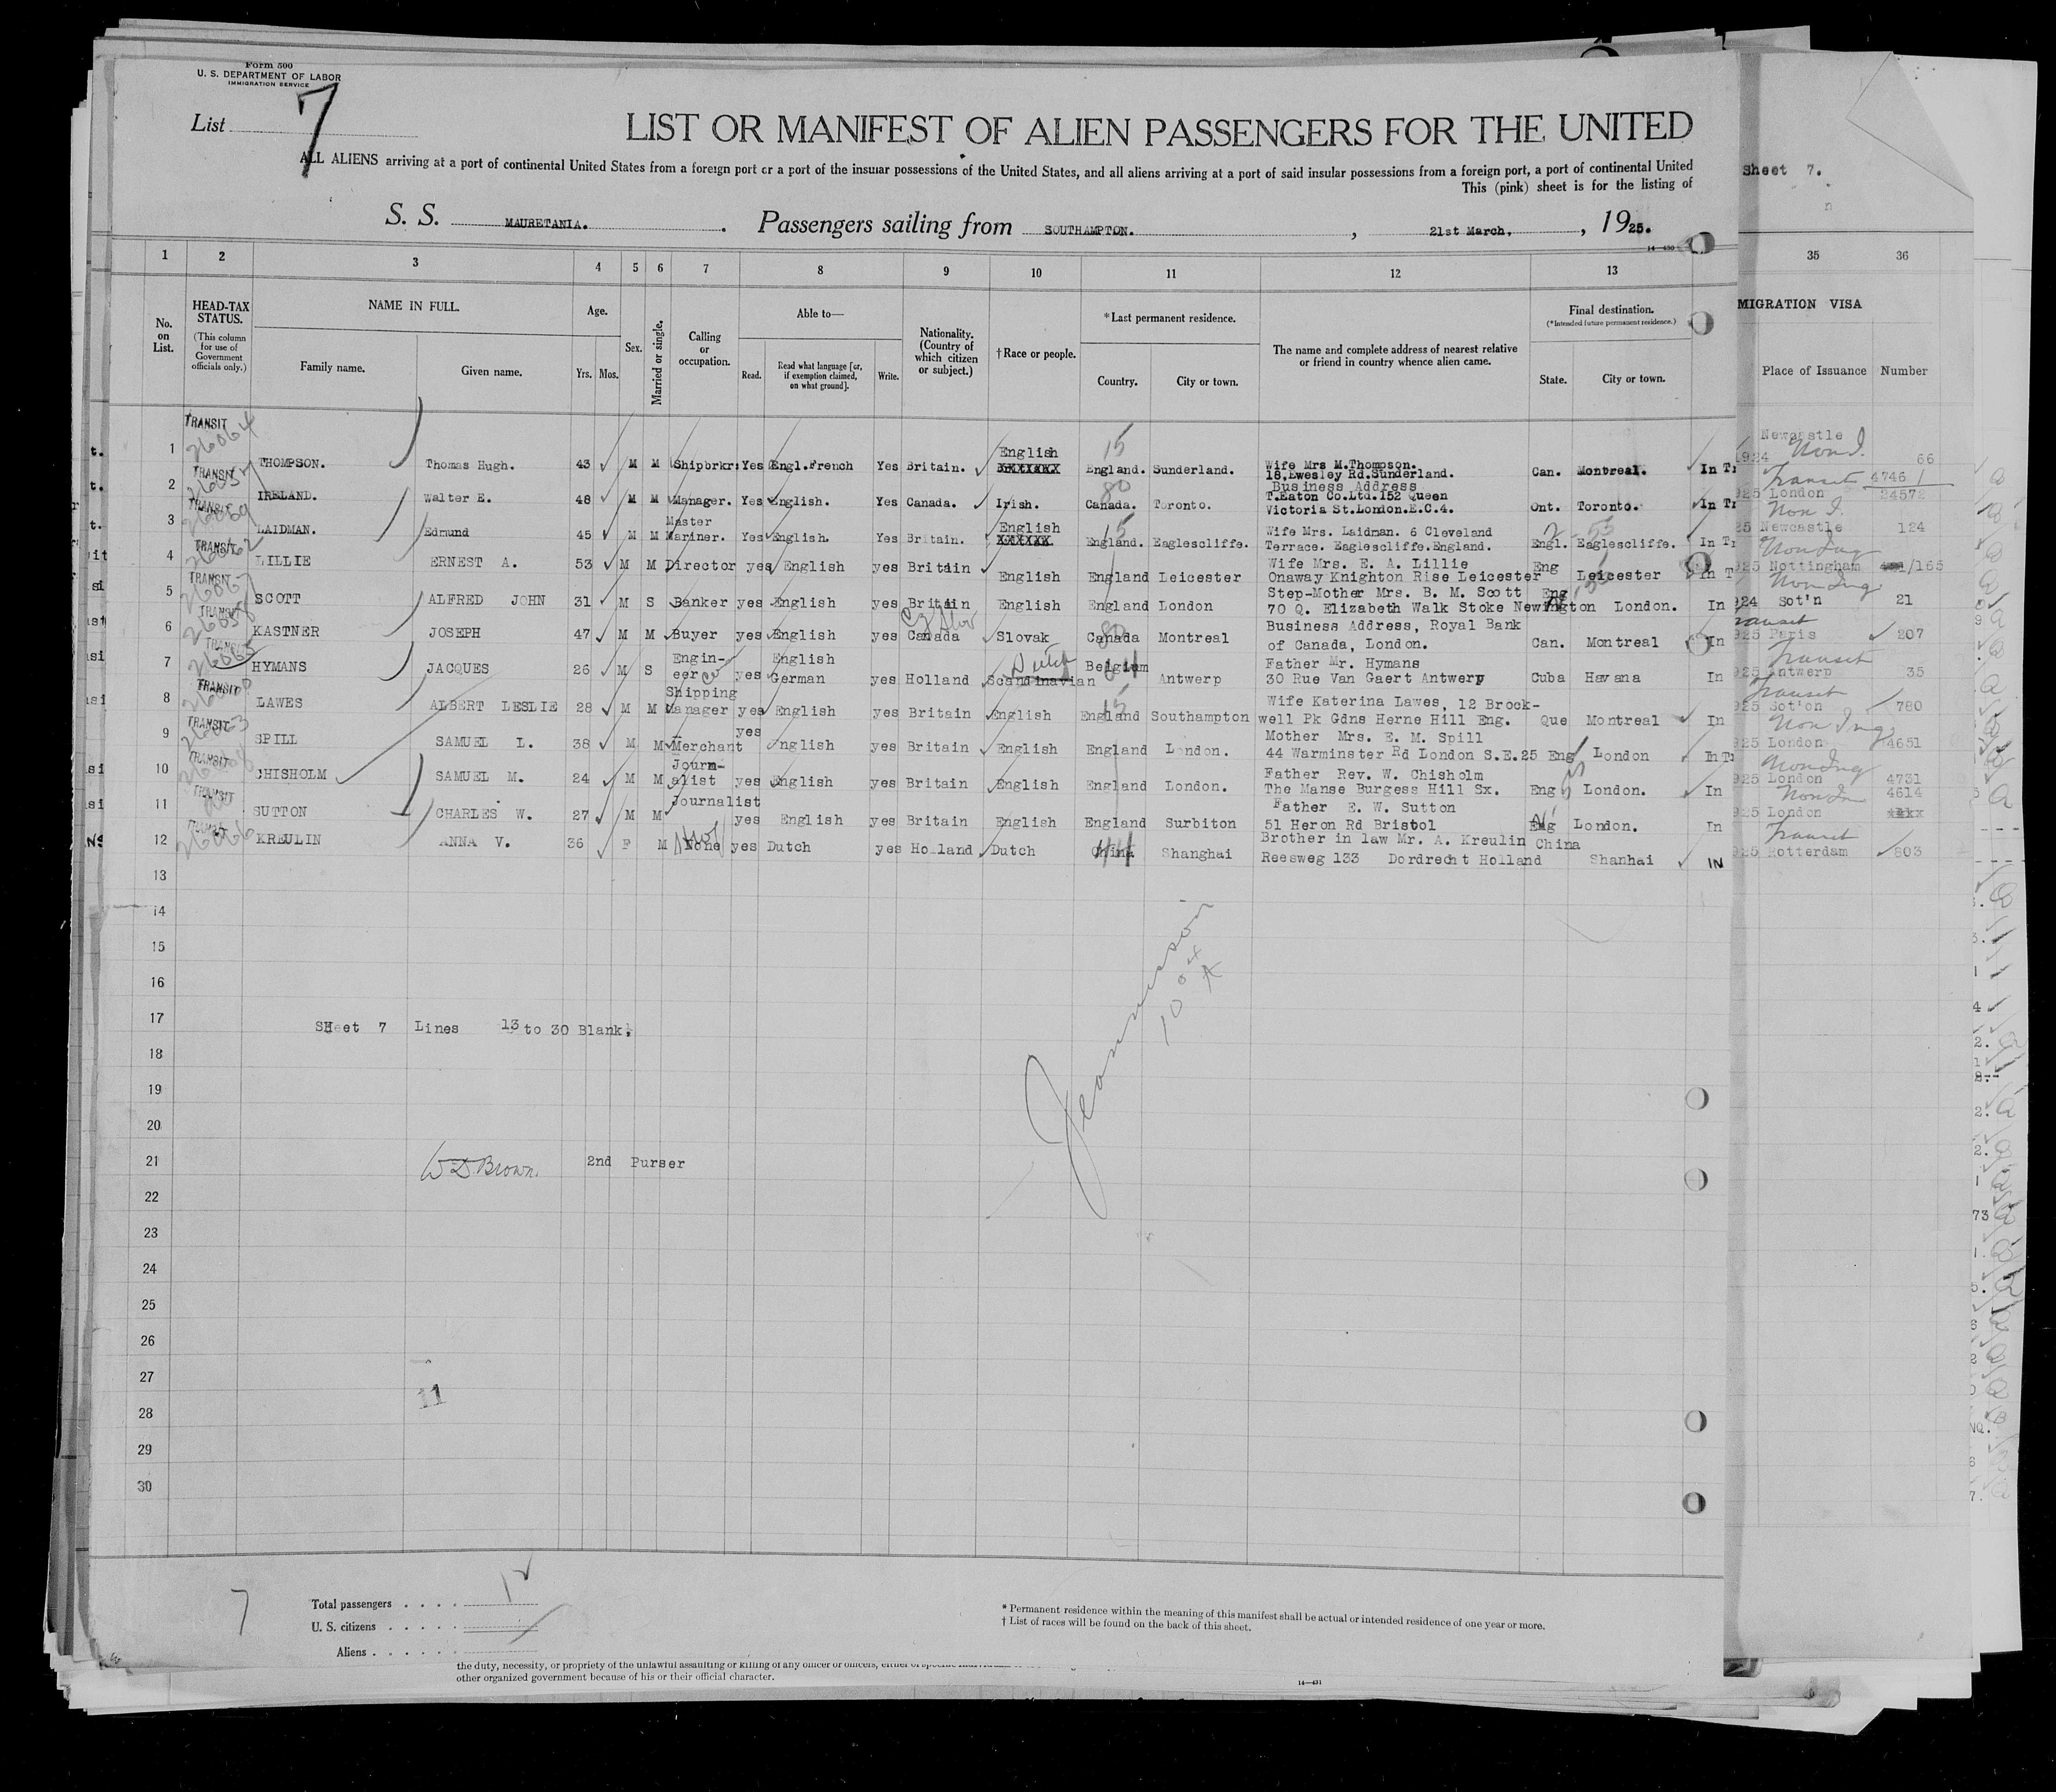 Form 500
U. S. DEPARTMENT OF LABOR
IMMIGRATION SERVICE
List 7
LIST OR MANIFEST OF ALIEN PASSENGERS FOR THE UNITED
ALL ALIENS arriving at a port of continental United States from a foreign port or a port of the insular possessions of the United States, and all aliens arriving at a port of said insular possessions from a foreign port, a port of continental United
This (pink) sheet is for the listing of
Sheet 7.
S. S. MAURETANIA. Passengers sailing from SOUTHAMPTON. , 21st March, , 1925.
1 2 3 4 5 6 7 8 9 10 11 12 13 35 36
No. on List.
HEAD-TAX STATUS.
(This column for use of Government officials only.)
NAME IN FULL.
Family name. Given name.
Age.
Yrs. Mos.
Sex.
Married or single.
Calling or occupation.
Able to—
Read. Read what language [or, if exemption claimed, on what ground]. Write.
Nationality. (Country of which citizen or subject.)
†Race or people.
*Last permanent residence.
Country. City or town.
The name and complete address of nearest relative or friend in country whence alien came.
Final destination.
(*Intended future permanent residence.)
State. City or town.
MIGRATION VISA
Place of Issuance Number
1 TRANSIT 26064 THOMPSON. Thomas Hugh. 43 M M Shipbrkr: Yes Engl.French Yes Britain. English XXXXXXX 15 England. Sunderland. Wife Mrs M.Thompson. 18,Ewesley Rd.Sunderland. Can. Montreal. In Tr 1924 Newcastle Non I. 66
2 TRANSIT IRELAND. Walter E. 48 M M Manager. Yes English. Yes Canada. Irish. 80 Canada. Toronto. Business Address T.Eaton Co.Ltd.152 Queen Victoria St.London.E.C.4. Ont. Toronto. In Tr Transit 4746 925 London 24572
3 TRANSIT LAIDMAN. Edmund 45 M M Master Mariner. Yes English. Yes Britain. English XXXXXX 15 England. Eaglescliffe. Wife Mrs. Laidman. 6 Cleveland Terrace. Eaglescliffe.England. Engl. Eaglescliffe. In Tr Non I. 25 Newcastle 124
4 TRANSIT LILLIE ERNEST A. 53 M M Director yes English yes Britain English England Leicester Wife Mrs. E. A. Lillie Onaway Knighton Rise Leicester Eng Leicester In T Non Img 925 Nottingham /165
5 TRANSIT SCOTT ALFRED JOHN 31 M S Banker yes English yes Britain English England London Step-Mother Mrs. B. M. Scott 70 Q. Elizabeth Walk Stoke Newington Eng London. In Non Img 924 Sot'n 21
6 TRANSIT KASTNER JOSEPH 47 M M Buyer yes English yes Canada Slovak 80 Canada Montreal Business Address, Royal Bank of Canada, London. Can. Montreal In Transit 925 Paris 207
7 TRANSIT HYMANS JACQUES 26 M S Engin-eer yes English German yes Holland Dutch Scandinavian Belgium Antwerp Father Mr. Hymans 30 Rue Van Gaert Antwerp Cuba Havana In Transit 925 Antwerp 35
8 TRANSIT LAWES ALBERT LESLIE 28 M M Shipping Manager yes English yes Britain English 15 England Southampton Wife Katerina Lawes, 12 Brock-well Pk Gdns Herne Hill Eng. Que Montreal In Transit 925 Sot'on 780
9 TRANSIT SPILL SAMUEL L. 38 M M Merchant yes English yes Britain English England London. Mother Mrs. E. M. Spill 44 Warminster Rd London S.E.25 Eng London In Tr Non Img 925 London 4651
10 TRANSIT CHISHOLM SAMUEL M. 24 M M Journ-alist yes English yes Britain English England London. Father Rev. W. Chisholm The Manse Burgess Hill Sx. Eng London. In Non Img 925 London 4731
11 TRANSIT SUTTON CHARLES W. 27 M M Journalist yes English yes Britain English England Surbiton Father E. W. Sutton 51 Heron Rd Bristol Eng London. In 925 London 4614
12 TRANSIT 26066 KREULIN ANNA V. 36 F M None yes Dutch yes Holland Dutch China Shanghai Brother in law Mr. A. Kreulin Reesweg 133 Dordrecht Holland China Shanhai IN Transit 925 Rotterdam 803
13
14
15
16
17 SHeet 7 Lines 13 to 30 Blank.
18
19
20
21 W D Brown. 2nd Purser
22
23
24
25
26
27
28 11
29
30
7
Total passengers . . . . 12
U. S. citizens . . . . .
Aliens . . . . . .
* Permanent residence within the meaning of this manifest shall be actual or intended residence of one year or more.
† List of races will be found on the back of this sheet.
the duty, necessity, or propriety of the unlawful assaulting or killing of any officer or officers, either of
other organized government because of his or their official character.
14—491